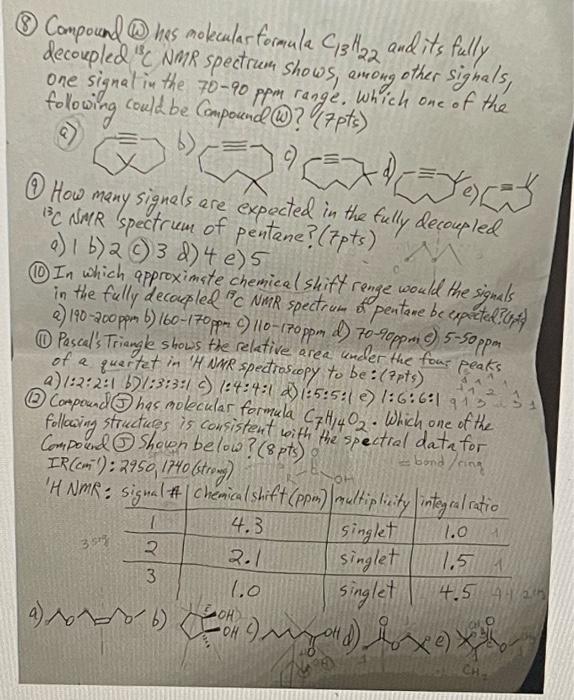 ⑧ Compound Ⓦ has molecular formula C13H22 and its fully
decoupled 13C NMR spectrum shows, among other signals,
one signal in the 70-90 ppm range. Which one of the
following could be Compound Ⓦ? (7pts)
a) b) c) d) e)
⑨ How many signals are expected in the fully decoupled
13C NMR spectrum of pentane? (7pts)
a) 1 b) 2 c) 3 d) 4 e) 5
⑩ In which approximate chemical shift range would the signals
in the fully decoupled 13C NMR spectrum of pentane be expected?
a) 190-200ppm b) 160-170ppm c) 110-170ppm d) 70-90ppm e) 5-50ppm
⑪ Pascal's Triangle shows the relative area under the four peaks
of a quartet in 'H NMR spectroscopy to be: (7pts)
a) 1:2:2:1 b) 1:3:3:1 c) 1:4:4:1 d) 1:5:5:1 e) 1:6:6:1
⑫ Compound Ⓙ has molecular formula C7H14O2. Which one of the
following structures is consistent with the spectral data for
Compound Ⓙ shown below? (8pts)
= bond/ring
IR(cm-1): 2950, 1740 (strong)
'H NMR: signal # chemical shift (ppm) multiplicity integral ratio
1 4.3 singlet 1.0
2 2.1 singlet 1.5
3 1.0 singlet 4.5
a) O O b) OH c) OH d) O O e) O
OH O O
CH3